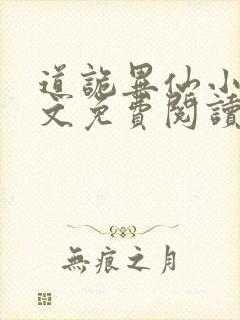 道詭異仙小
文免費閱讀
無痕之月